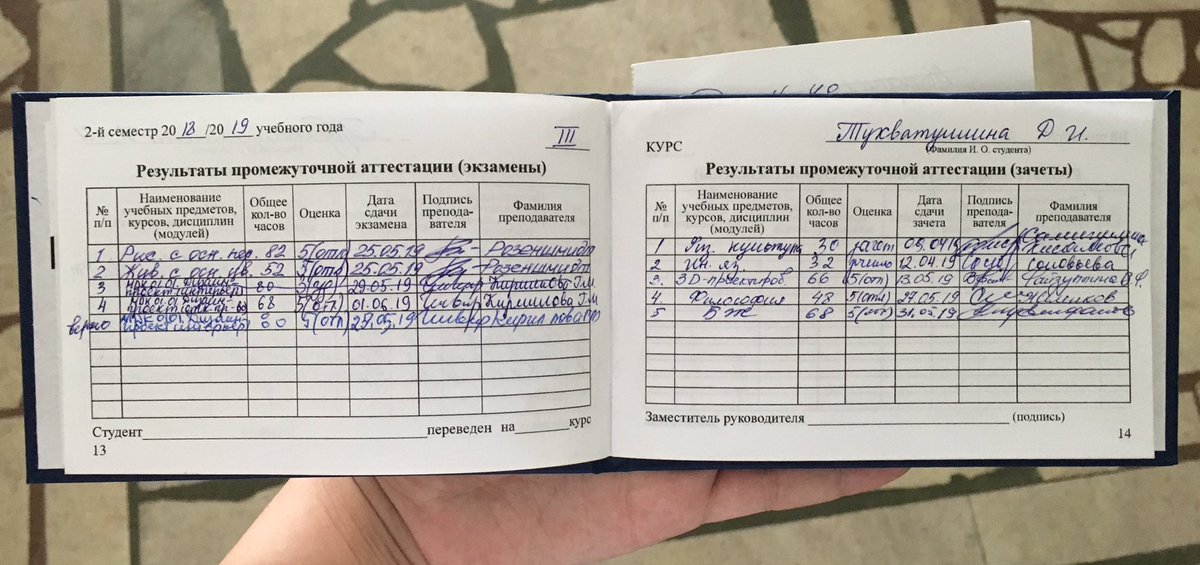 2-й семестр 2018/2019 учебного года
III
Результаты промежуточной аттестации (экзамены)
№ п/п
Наименование учебных предметов, курсов, дисциплин (модулей)
Общее кол-во часов
Оценка
Дата сдачи экзамена
Подпись препода-вателя
Фамилия преподавателя
1 Рис. с осн. пер. 82 5(отл) 25.05.19
2 Жив. с осн. цв. 52 25.05.19
3 80 29.05.19 Кириллова Г.М
4 68 5(отл) 01.06.19 Кириллова Г.М
верно 80 5(отл) 29.05.19
Студент переведен на курс
13
КУРС
Тухватуллина Д И.
(Фамилия И. О. студента)
Результаты промежуточной аттестации (зачеты)
№ п/п
Наименование учебных предметов, курсов, дисциплин (модулей)
Общее кол-во часов
Оценка
Дата сдачи зачета
Подпись препода-вателя
Фамилия преподавателя
1 Физ. культура 30 зачет
2 Ин. яз. 32 12.04.19 Соловьева
3. 3D-проектиров 66 5(отл) 13.05.19
4. Философия 48 5(отл) 24.05.19
5 БЖ 68 5(отл) 31.05.19
Заместитель руководителя (подпись)
14